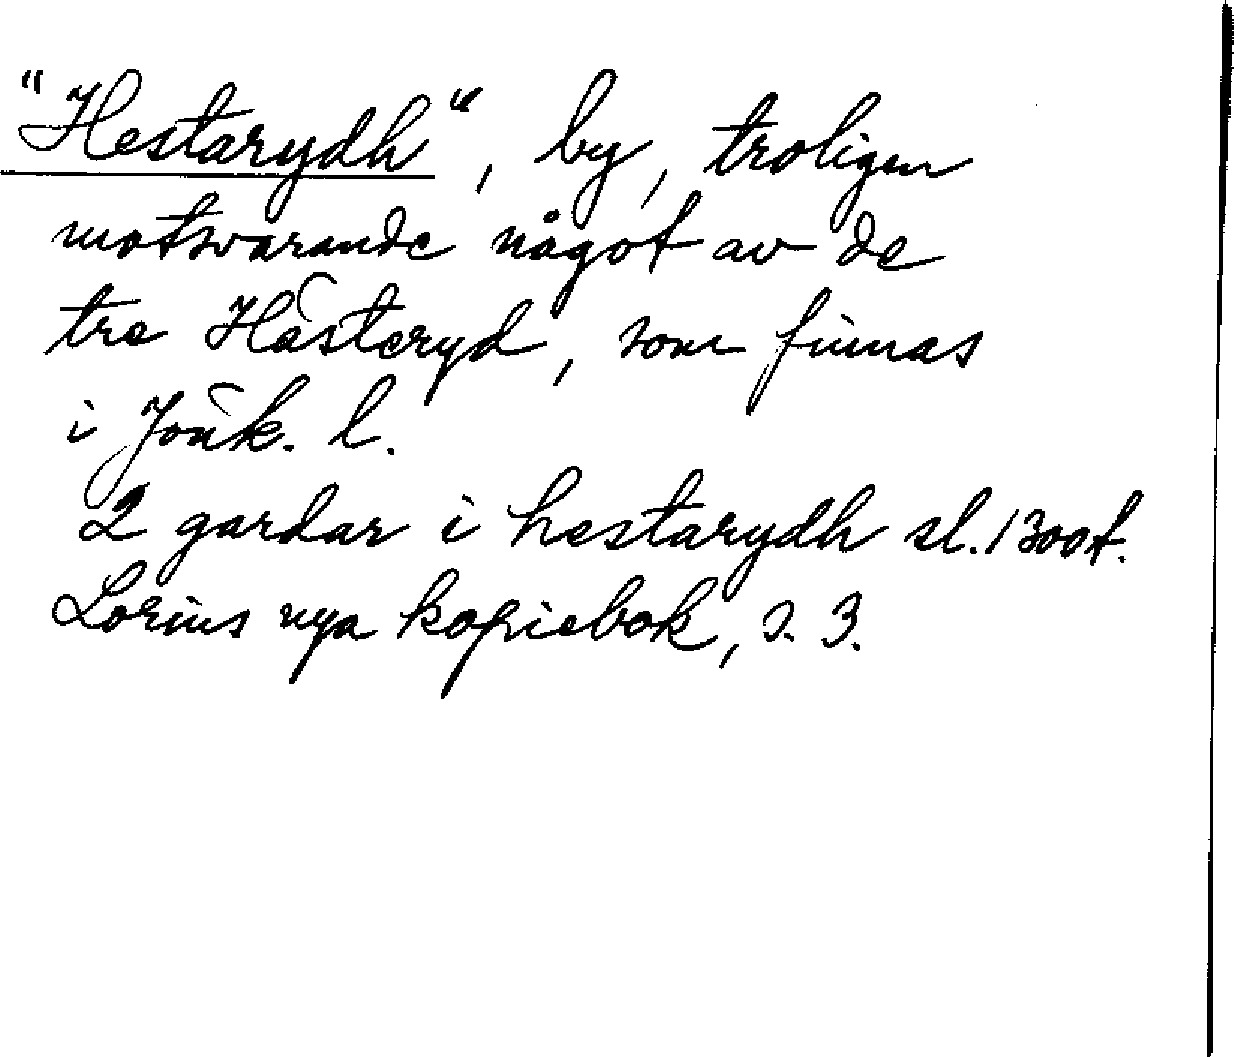 "Hestarydh", by, troligen
motsvarande något av de
tre Hästeryd, som finnas
i Jönk. l.
2 gardar i hestarydh sl. 1300t.
nya kopiebok, s. 3.